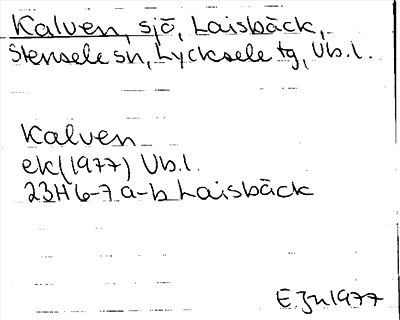 Kalven, sjö, Laisbäck,
Stensele sn, Lycksele tg, Vb.l.
Kalven
ek(1977) Vb.l.
23H 6-7 a-b Laisbäck
E Jn 1977